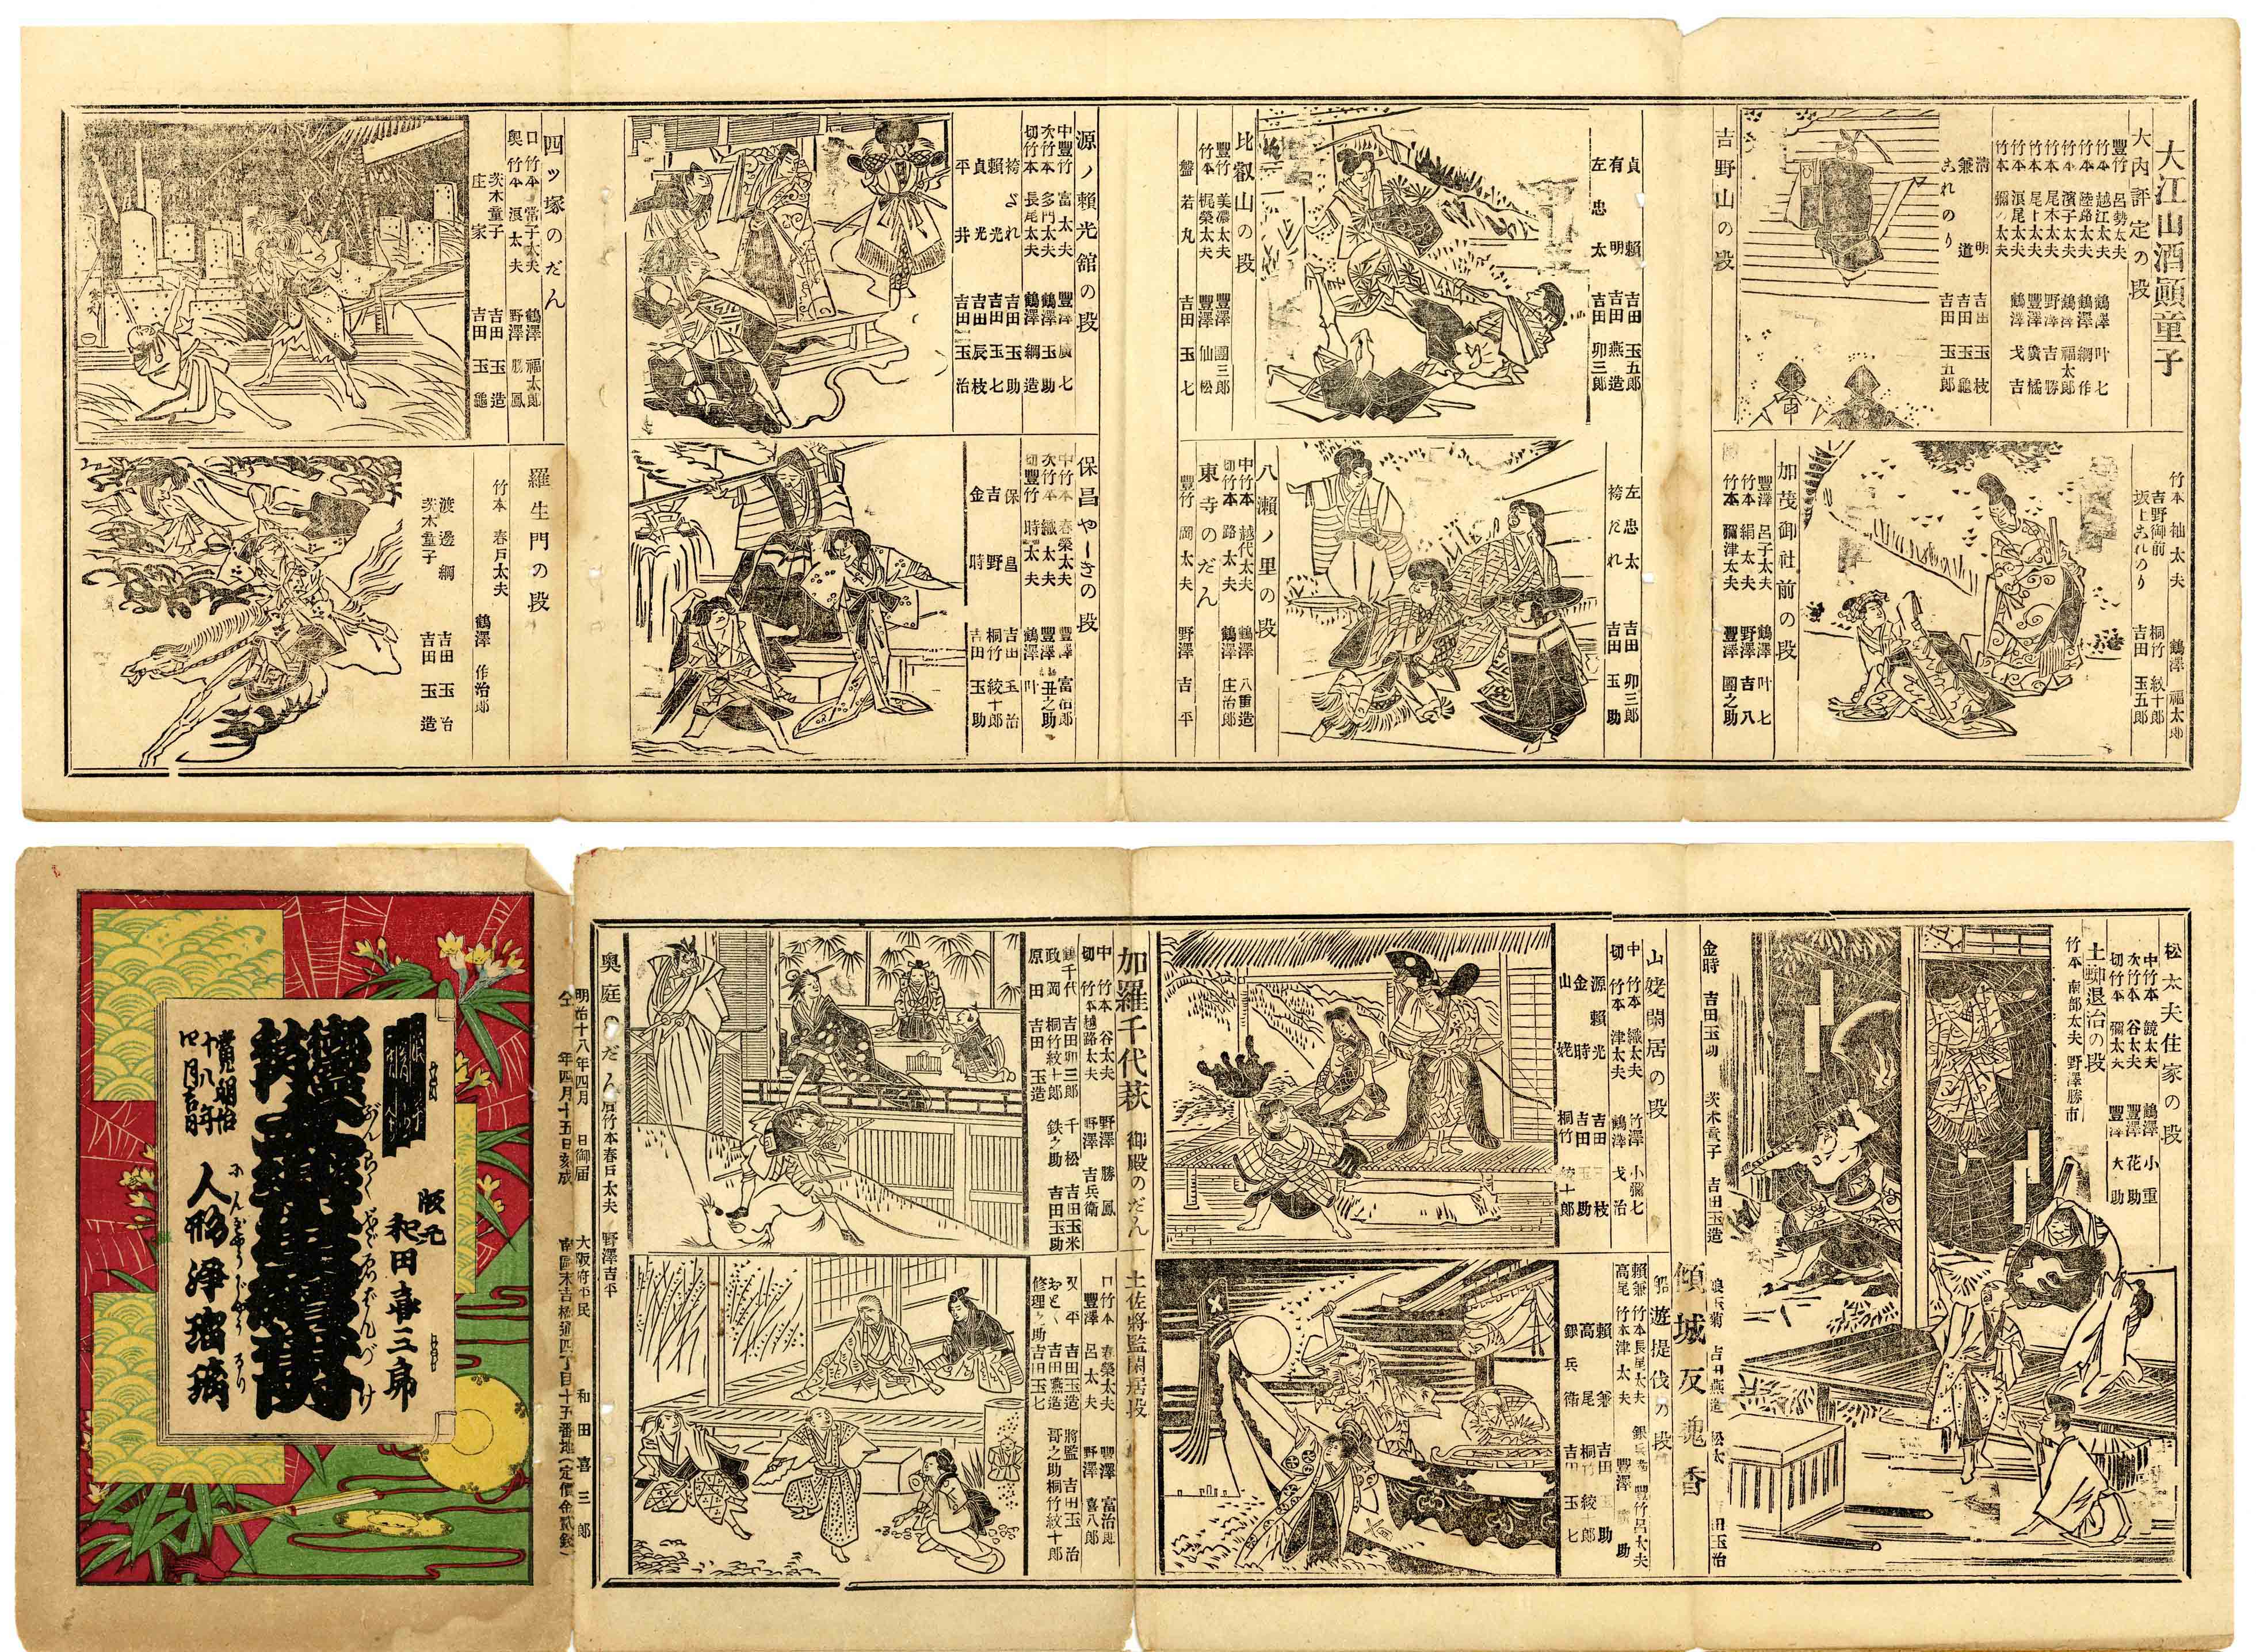 大江山酒顚童子
大内評定の段
豐竹 呂勢太夫
竹本 越江太夫 鶴澤 叶七
竹本 陸路太夫 鶴澤 綱作
竹本 濱子太夫 鶴澤 福太郎
竹本 尾木太夫 野澤 吉勝
竹本 尾上太夫 豐澤 廣橘
竹本 浪尾太夫 鶴澤 戈吉
竹本 彌の太夫
清明 吉田 玉枝
兼道 吉田 玉龜
これのり 吉田 玉五郎
吉野山の段
竹本 袖太夫 鶴澤 福太郎
吉野御前 桐竹 紋十郎
坂上これのり 吉田 玉五郎
加茂御社前の段
豐澤 呂子太夫 鶴澤 叶七
竹本 絹太夫 野澤 吉八
竹本 彌津太夫 豐澤 團之助
貞賴 吉田 玉五郎
有明 吉田 燕造
左忠太 吉田 卯三郎
比叡山の段
豐竹 美濃太夫 豐澤 團三郎
竹本 梶榮太夫 豐澤 仙松
盤若丸 吉田 玉七
左忠太 吉田 卯三郎
袴だれ 吉田 玉助
八瀬ノ里の段
中 竹本 越代太夫 鶴澤 八重造
切 竹本 路太夫 鶴澤 庄治郎
東寺のだん
豐竹 岡太夫 野澤 吉平
源ノ賴光舘の段
中 豐竹 富太夫 豐澤 廣七
次 竹本 多門太夫 鶴澤 玉助
切 竹本 長尾太夫 鶴澤 綱造
袴ざれ 吉田 玉助
賴光 吉田 玉七
貞光 吉田 辰枝
平井 吉田 玉治
保昌やしきの段
中 竹本 春榮太夫 豐澤 富治郎
次 竹本 織太夫 豐澤 丑之助
切 豐竹 時太夫 鶴澤 叶
保昌 吉田 玉治
吉野 桐竹 紋十郎
金時 吉田 玉助
四ッ塚のだん
口 竹本 常子太夫 鶴澤 福太郎
奥 竹本 浪太夫 野澤 勝鳳
茨木童子 吉田 玉造
庄家 吉田 玉龜
羅生門の段
竹本 春戸太夫 鶴澤 作治郎
渡邊綱 吉田 玉治
茨木童子 吉田 玉造
松太夫住家の段
中 竹本 鏡太夫 鶴澤 小重
次 竹本 谷太夫 豐澤 花助
切 竹本 彌太夫 豐澤 大助
土蜘退治の段
竹本 南部太夫 野澤勝市
金時 吉田玉助
茨木童子 吉田玉造
吉田燕造
山姥閑居の段
中 竹本 織太夫 竹澤 小彌七
切 竹本 津太夫 鶴澤 戈治
源賴光 吉田 玉枝
金時 吉田 玉助
山姥 桐竹 紋十郎
傾城反魂香
船遊提伐の段
賴兼 竹本長尾太夫
高尾 竹本津太夫
銀兵衛 豐竹呂太夫
賴兼 吉田 玉助
高尾 桐竹 紋十郎
銀兵衛 吉田 玉七
加羅千代萩 御殿のだん
中 竹本 谷太夫 野澤 勝鳳
切 竹本越路太夫 野澤 吉兵衛
鶴千代 吉田卯三郎 千松 吉田玉米
政岡 桐竹紋十郎 鉄之助 吉田玉助
原田 吉田 玉造
土佐將監閑居段
口 竹本 春榮太夫 豐澤 富治郎
豐澤 呂太夫 野澤 喜八郎
又平 吉田玉造 將監 吉田玉治
おとく 吉田燕造 哥之助桐竹紋十郎
修理之助吉田玉七
奥庭のだん 竹本春日太夫 野澤吉平
明治十八年四月 日御届 大阪府平民 和田喜三郎
仝 年四月十五日刻成 南區末吉橋通四丁目十五番地(定價金貳錢)
版元 和田喜三郎
ぶんらくしばゐばんづけ
人形浄瑠璃
にんぎやうじやうるり
明治
十八年
四月吉日